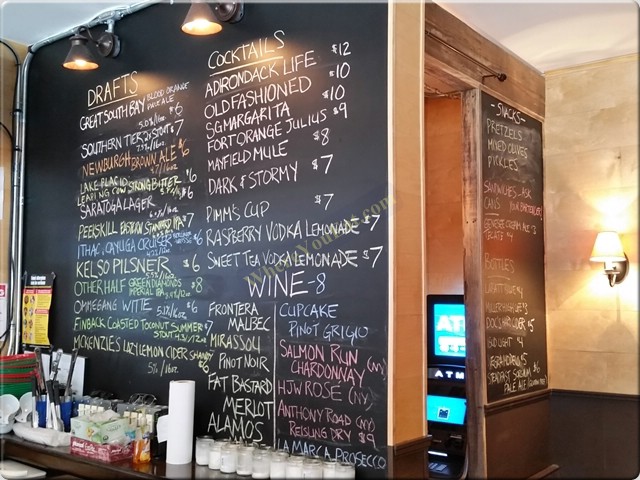 DRAFTS
GREAT SOUTH BAY BLOOD ORANGE
PALE ALE
5.0%/16oz. 6
SOUTHERN TIER 2X STOUT $7
NEWBURGH BROWN ALE $6
LAKE PLACID
LEAPING COW STRONG BITTER $6
SARATOGA LAGER $6
PEEKSKILL EASTERN STANDARD IPA $7
ITHACA CAYUGA CRUISER $6
KELSO PILSNER $6
OTHER HALF GREEN DIAMONDS $8
IMPERIAL IPA
OMMEGANG WITTE $6
FINBACK COASTED TOCONUT SUMMER $7
STOUT
MCKENZIE'S LAZY LEMON CIDER SHANDY
5%/16oz $6
COCKTAILS
ADIRONDACK LIFE $12
OLD FASHIONED $10
SG MARGARITA $10
FORT ORANGE JULIUS $9
MAYFIELD MULE $8
DARK & STORMY $7
PIMM'S CUP $7
RASPBERRY VODKA LEMONADE $7
SWEET TEA VODKA LEMONADE $7
WINE-8
FRONTERA
MALBEC
MIRASSOU
PINOT NOIR
FAT BASTARD
MERLOT
ALAMOS
CUPCAKE
PINOT GRIGIO
SALMON RUN (NY)
CHARDONNAY
HJW ROSE (NY)
ANTHONY ROAD (NY)
REISLING DRY $9
LA MARCA PROSECCO
- SNACKS -
PRETZELS
MIXED OLIVES
PICKLES
SANDWICHES - ASK
YOUR BARTENDER!
CANS
GENESEE CREAM ALE $3
BOTTLES
MILLER HIGH LIFE $3
DOC'S CIDER $5
BREAKFAST
PALE ALE
AT
ATM
WhenYouEat.com